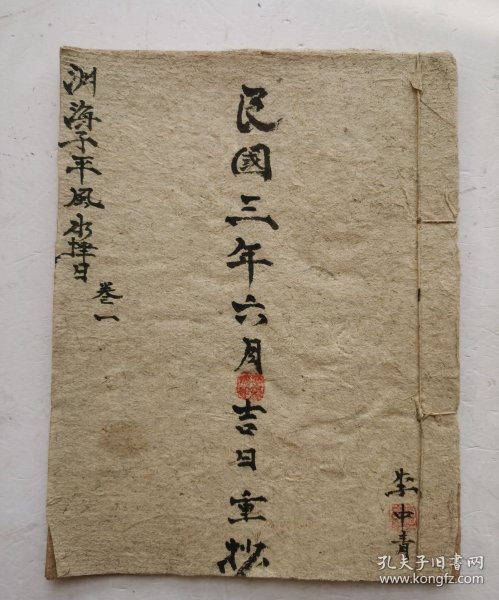 李中青
民國三年六月吉日重抄
渊海子平風水择日
卷一
孔夫子旧书网
www.kongfz.com